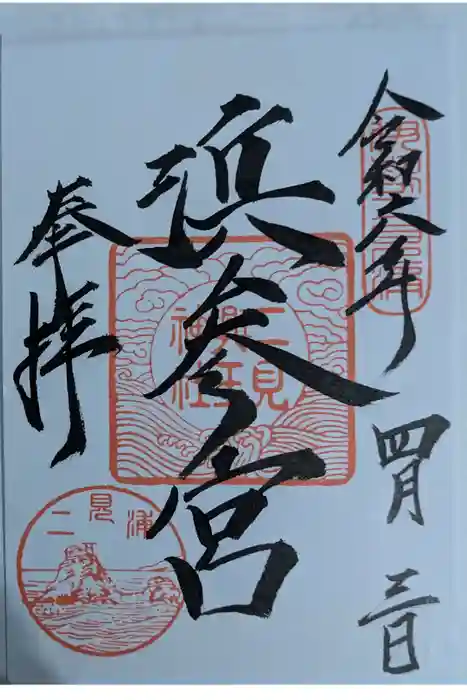 令和六年
四月
三日
浜参宮
奉拝
二見
興玉
神社
二見浦